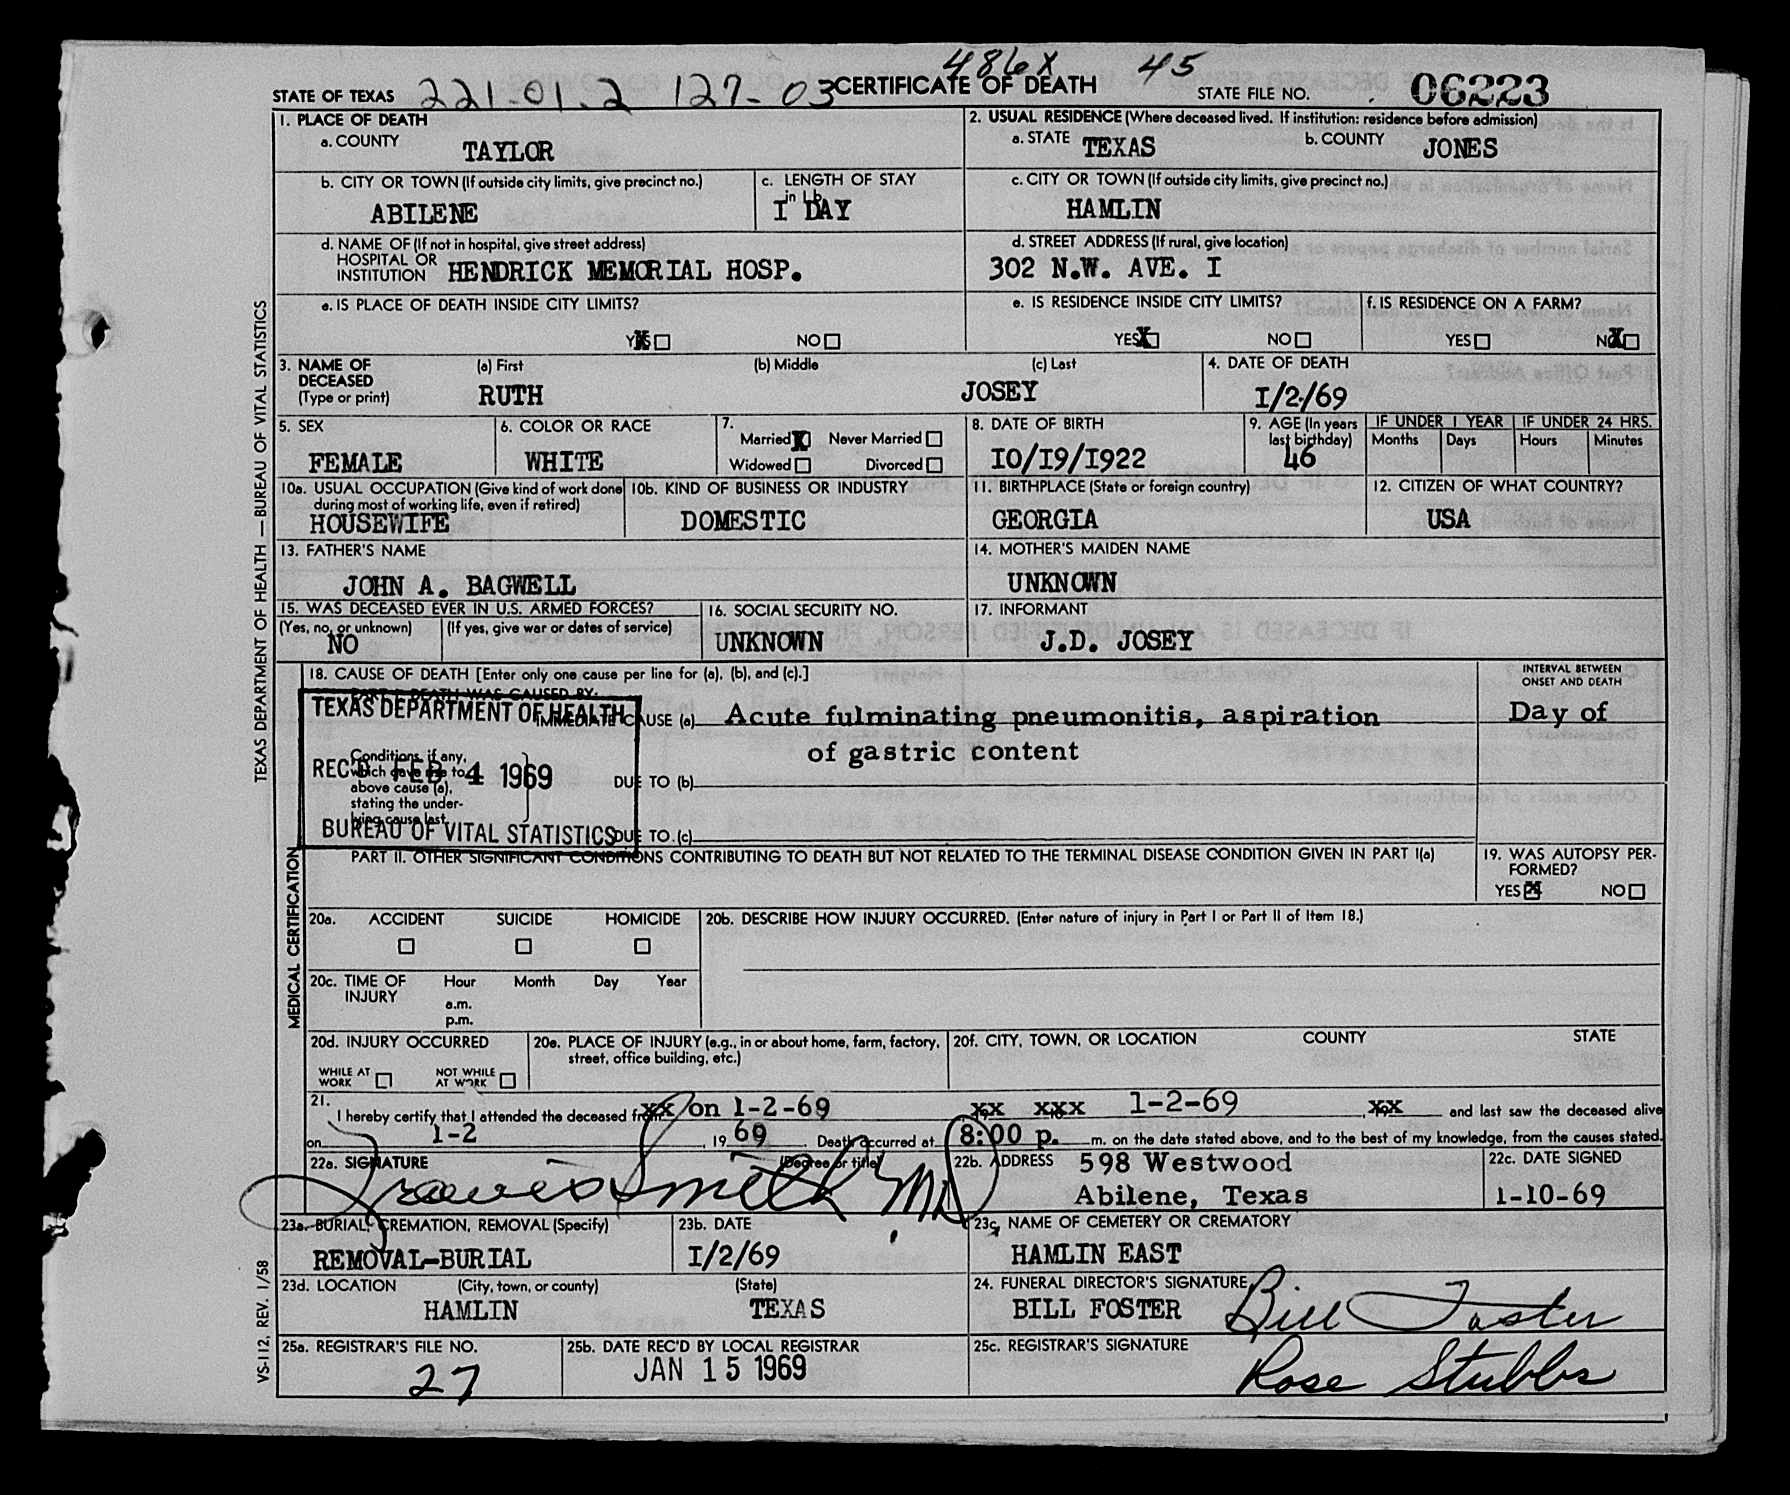 486X 45
STATE OF TEXAS 221-01-2 127-03 CERTIFICATE OF DEATH STATE FILE NO. 06223
1. PLACE OF DEATH
a. COUNTY TAYLOR
2. USUAL RESIDENCE (Where deceased lived. If institution: residence before admission)
a. STATE TEXAS b. COUNTY JONES
b. CITY OR TOWN (If outside city limits, give precinct no.) ABILENE
c. LENGTH OF STAY in 1b I DAY
c. CITY OR TOWN (If outside city limits, give precinct no.) HAMLIN
d. NAME OF (If not in hospital, give street address)
HOSPITAL OR
INSTITUTION HENDRICK MEMORIAL HOSP.
d. STREET ADDRESS (If rural, give location)
302 N.W. AVE. I
e. IS PLACE OF DEATH INSIDE CITY LIMITS?
YES X NO
e. IS RESIDENCE INSIDE CITY LIMITS?
YES X NO
f. IS RESIDENCE ON A FARM?
YES NO X
3. NAME OF DECEASED (Type or print) (a) First (b) Middle (c) Last
RUTH JOSEY
4. DATE OF DEATH
I/2/69
5. SEX
FEMALE
6. COLOR OR RACE
WHITE
7. Married X Never Married
Widowed Divorced
8. DATE OF BIRTH
IO/I9/I922
9. AGE (In years last birthday)
46
IF UNDER 1 YEAR IF UNDER 24 HRS.
Months Days Hours Minutes
10a. USUAL OCCUPATION (Give kind of work done during most of working life, even if retired)
HOUSEWIFE
10b. KIND OF BUSINESS OR INDUSTRY
DOMESTIC
11. BIRTHPLACE (State or foreign country)
GEORGIA
12. CITIZEN OF WHAT COUNTRY?
USA
13. FATHER'S NAME
JOHN A. BAGWELL
14. MOTHER'S MAIDEN NAME
UNKNOWN
15. WAS DECEASED EVER IN U.S. ARMED FORCES?
(Yes, no, or unknown) (If yes, give war or dates of service)
NO
16. SOCIAL SECURITY NO.
UNKNOWN
17. INFORMANT
J.D. JOSEY
18. CAUSE OF DEATH [Enter only one cause per line for (a), (b), and (c).]
INTERVAL BETWEEN
ONSET AND DEATH
PART I. DEATH WAS CAUSED BY:
IMMEDIATE CAUSE (a) Acute fulminating pneumonitis, aspiration Day of
of gastric content
Conditions, if any,
which gave rise to
above cause (a),
stating the under-
lying cause last.
DUE TO (b)
DUE TO (c)
TEXAS DEPARTMENT OF HEALTH
REC'D FEB 4 1969
BUREAU OF VITAL STATISTICS
PART II. OTHER SIGNIFICANT CONDITIONS CONTRIBUTING TO DEATH BUT NOT RELATED TO THE TERMINAL DISEASE CONDITION GIVEN IN PART I(a)
19. WAS AUTOPSY PER-
FORMED?
YES X NO
20a. ACCIDENT SUICIDE HOMICIDE
20b. DESCRIBE HOW INJURY OCCURRED. (Enter nature of injury in Part I or Part II of Item 18.)
20c. TIME OF INJURY Hour Month Day Year
a.m.
p.m.
20d. INJURY OCCURRED
WHILE AT WORK NOT WHILE AT WORK
20e. PLACE OF INJURY (e.g., in or about home, farm, factory, street, office building, etc.)
20f. CITY, TOWN, OR LOCATION COUNTY STATE
21. I hereby certify that I attended the deceased from xx on 1-2-69 xx xxx 1-2-69, xx and last saw the deceased alive
on 1-2, 19 69. Death occurred at 8:00 p. m. on the date stated above, and to the best of my knowledge, from the causes stated.
22a. SIGNATURE (Degree or title)
Travis Smith M.D.
22b. ADDRESS 598 Westwood
Abilene, Texas
22c. DATE SIGNED
1-10-69
23a. BURIAL, CREMATION, REMOVAL (Specify)
REMOVAL-BURIAL
23b. DATE
I/2/69
23c. NAME OF CEMETERY OR CREMATORY
HAMLIN EAST
23d. LOCATION (City, town, or county) (State)
HAMLIN TEXAS
24. FUNERAL DIRECTOR'S SIGNATURE
BILL FOSTER Bill Foster
25a. REGISTRAR'S FILE NO.
27
25b. DATE REC'D BY LOCAL REGISTRAR
JAN 15 1969
25c. REGISTRAR'S SIGNATURE
Rose Stubbs
TEXAS DEPARTMENT OF HEALTH — BUREAU OF VITAL STATISTICS
MEDICAL CERTIFICATION
VS-112, REV. 1/58